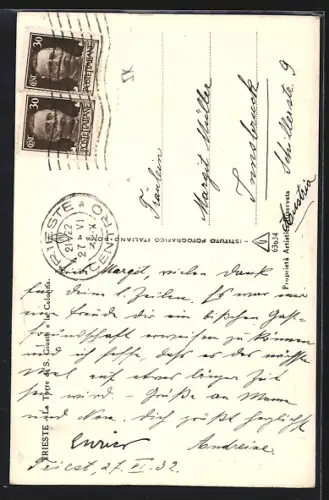 30 30
CENT. CENT.
POSTE ITALIANE
30 30
CENT. CENT.
POSTE ITALIANE
TRIESTE
CENTRO
21-22
27 VI
32 X
Fräulein
Margit Müller
Innsbruck
Schillerstr. 9
Austria
ISTITUTO FOTOGRAFICO ITALIANO
63634
Proprietà Artistica Riservata
TRIESTE - La Torre di S. Giusto e le Colonne
Margit, vielen Dank
für deine l. Zeilen. Es war mir
eine Freude dir ein bißchen Gast-
freundschaft erweisen zu können
und ich hoffe, dass es das nächste
Mal auf etwas länger Zeit
sein wird. - Grüße an Mama
und Dich grüßt herzlichst
Enrico
Triest, 27. VI. 32.